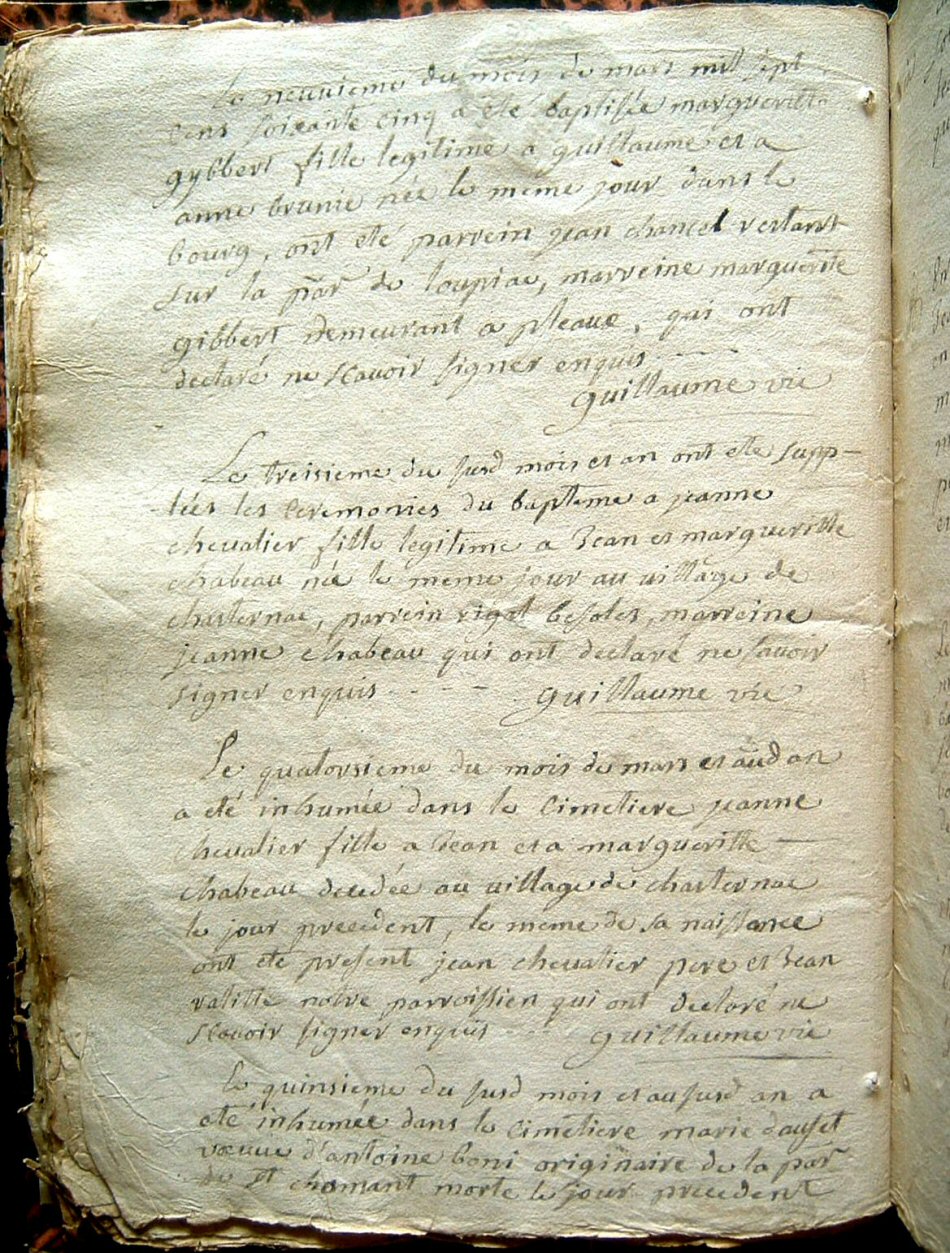 Le neuvieme du mois de mars mil sept
cens soixante cinq a eté baptisée margueritte
gybbert fille legitime a guillaume et a
anne brunie née le meme jour dans le
bourg, ont eté parrein jean chancel restant
sur la par de loupiac, marreine margueritte
gibbert demeurant a pleaux, qui ont
declaré ne scavoir signer enquis
guillaume vie
Le treisieme du susd mois et an ont eté supp-
léés les ceremonies du bapteme a jeanne
chevalier fille legitime a Jean et margueritte
chabeau née le meme jour au village de
chasternac, parrein rigal besoles, marreine
jeanne chabeau qui ont declaré ne savoir
signer enquis - - - guillaume vie
Le quatorsieme du mois de mars et aud an
a eté inhumée dans le cimetiere jeanne
chevalier fille a Jean et a margueritte
chabeau decedée au village de chasternac
le jour precedent, le meme de sa naissance
ont eté present jean chevalier pere et Jean
valitte notre parroissien qui ont declaré ne
scavoir signer enquis guillaume vie
Le quinsieme du susd mois et au susd an a
eté inhumée dans le cimetiere marie dauset
voeuve d'antoine boni originaire de la par
de St chamant morte le jour precedent